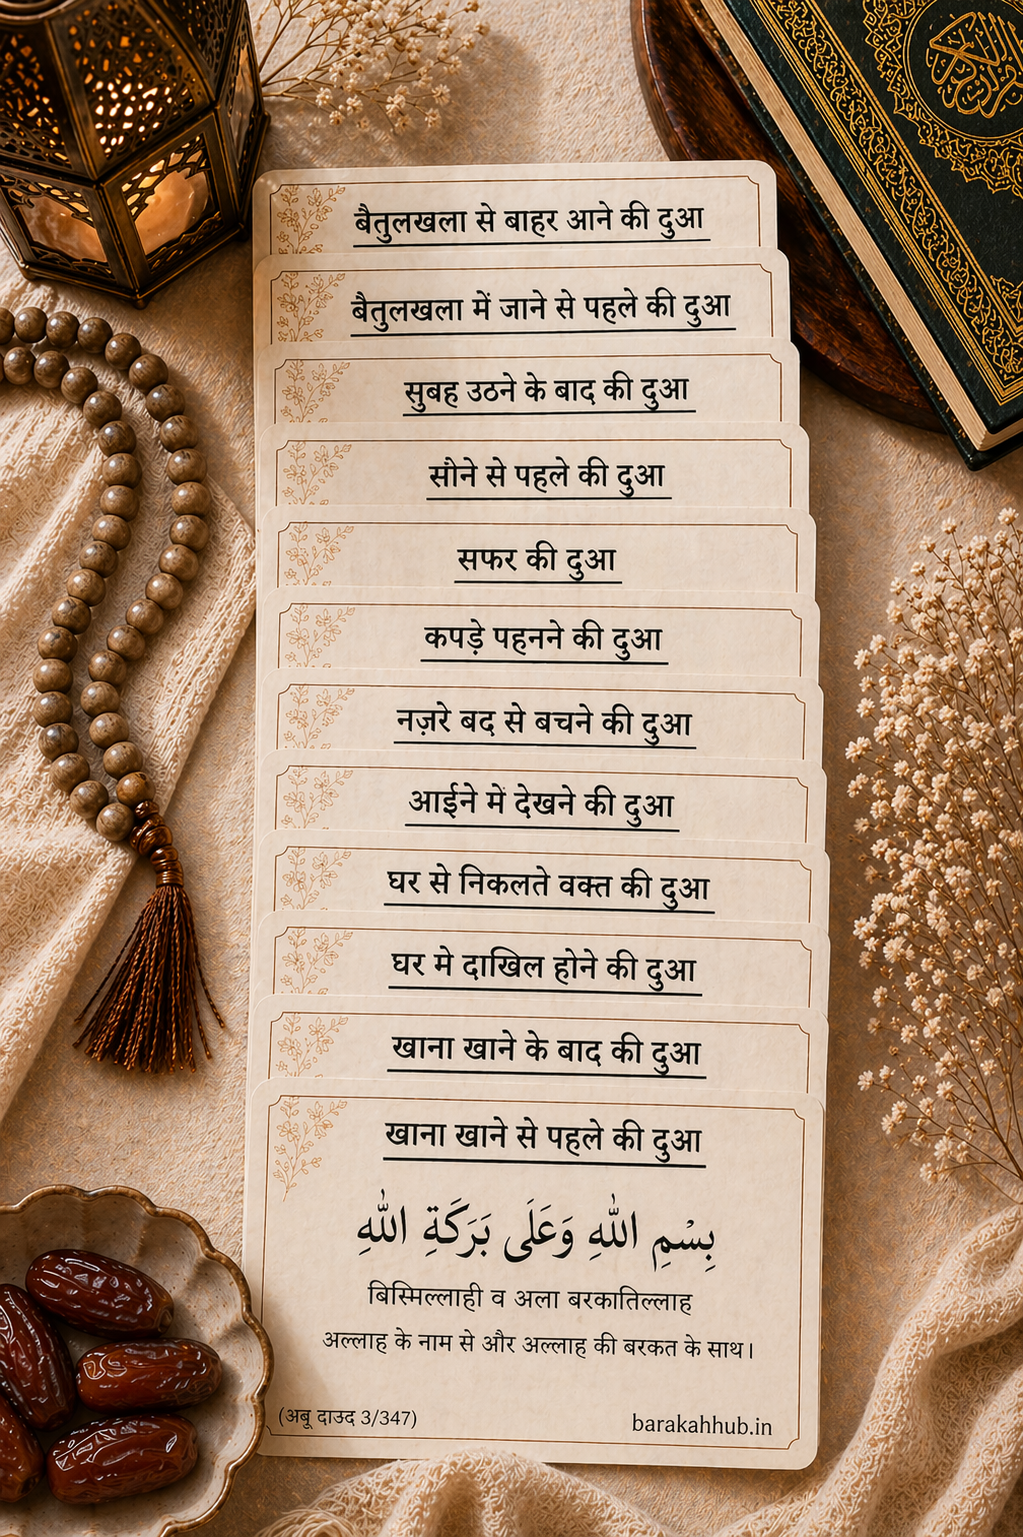 बैतुलखला से बाहर आने की दुआ
बैतुलखला में जाने से पहले की दुआ
सुबह उठने के बाद की दुआ
सोने से पहले की दुआ
सफर की दुआ
कपड़े पहनने की दुआ
नज़रे बद से बचने की दुआ
आईने में देखने की दुआ
घर से निकलते वक्त की दुआ
घर मे दाखिल होने की दुआ
खाना खाने के बाद की दुआ
खाना खाने से पहले की दुआ
بِسْمِ اللهِ وَعَلَى بَرَكَةِ اللهِ
बिस्मिल्लाही व अला बरकातिल्लाह
अल्लाह के नाम से और अल्लाह की बरकत के साथ।
(अबू दाउद 3/347)
barakahhub.in